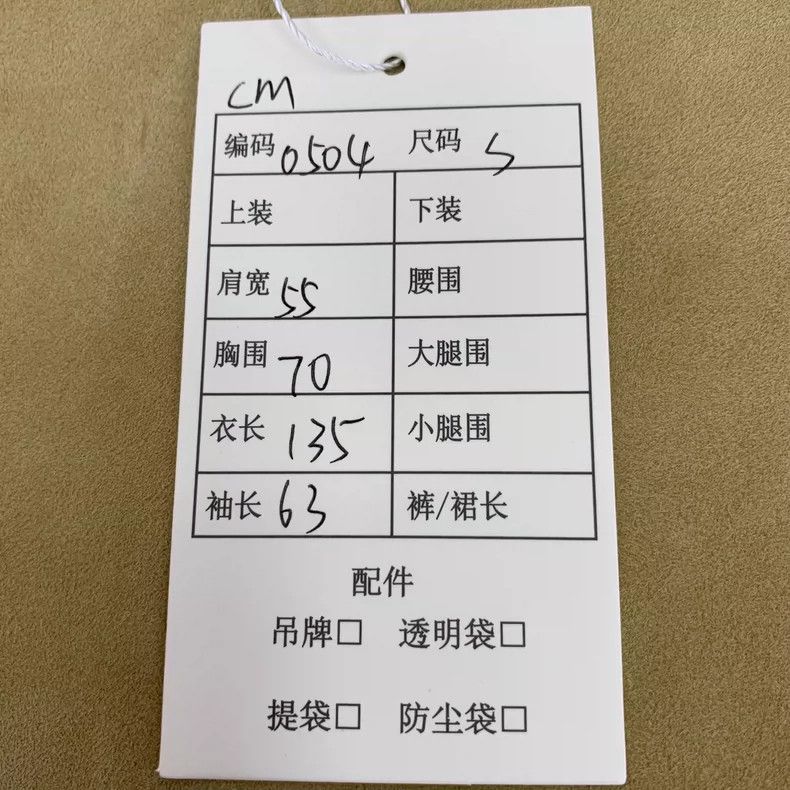 CM
编码 0504 尺码 S
上装 下装
肩宽 55 腰围
胸围 70 大腿围
衣长 135 小腿围
袖长 63 裤/裙长
配件
吊牌□ 透明袋□
提袋□ 防尘袋□